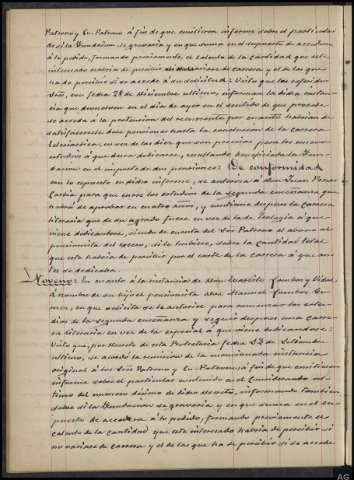 Patrono y Co-Patrono á fin de que emitieran informe sobre el particular
de si la Fundacion se gravaria y en que suma en el supuesto de acceder
á lo pedido, formando previamente el calculo de la cantidad que este
interesado habria de percibir si no variase de carrera y el de las que
ha de percibir si se accede á su solicitud: Visto que los referidos
Sres, en fecha 28 de Diciembre ultimo, informan la dicha instan-
cia que
se acceda á la pretension del recurrente por cuanto habran de
satisfacersele dos pensiones hasta la conclusion de la carrera
Eclesiastica, en vez de las diez que son precisas para los nuevos
estudios á que desea dedicarse, resultando beneficiada la Fun-
dacion en el importe de dos pensiones: De conformidad
con lo expuesto en dicho informe, se autoriza á don Juan
para que curse los estudios de la segunda enseñanza que
habrá de aprobar en cuatro años, y continue despues la carrera
literaria que de su agrado fuere en vez de la de Teologia á que
viene dedicandose, siendo de cuenta del Sor Patrono el abono al
pensionista del exceso, si le hubiere, sobre la cantidad total
que este habria de percibir por el coste de la carrera á que an-
tes se dedicaba.
Noveno: En cuanto á la instancia de don
á nombre de su hijo el pensionista don Manuel
en que solicita se le autorice para comenzar los estu-
dios de la segunda enseñanza y seguir despues una carre-
ra literaria en vez de la especial á que viene dedicandose:
Visto que, por decreto de esta Protectoria fecha 22 de Setiembre
ultimo, se acordó la remision de la mencionada instancia
original á los Sres Patrono y Co-Patrono, á fin de que emitieran
informe sobre el particular contenido en el Considerando ul-
timo del numero decimo de dicho decreto, informando tambien
sobre si la Fundacion se gravaria y en que suma en el su-
puesto de acceder á lo pedido, formando previamente el
calculo de la cantidad que este interesado habria de percibir si
no variase de carrera y el de las que ha de percibir si se accede
AG